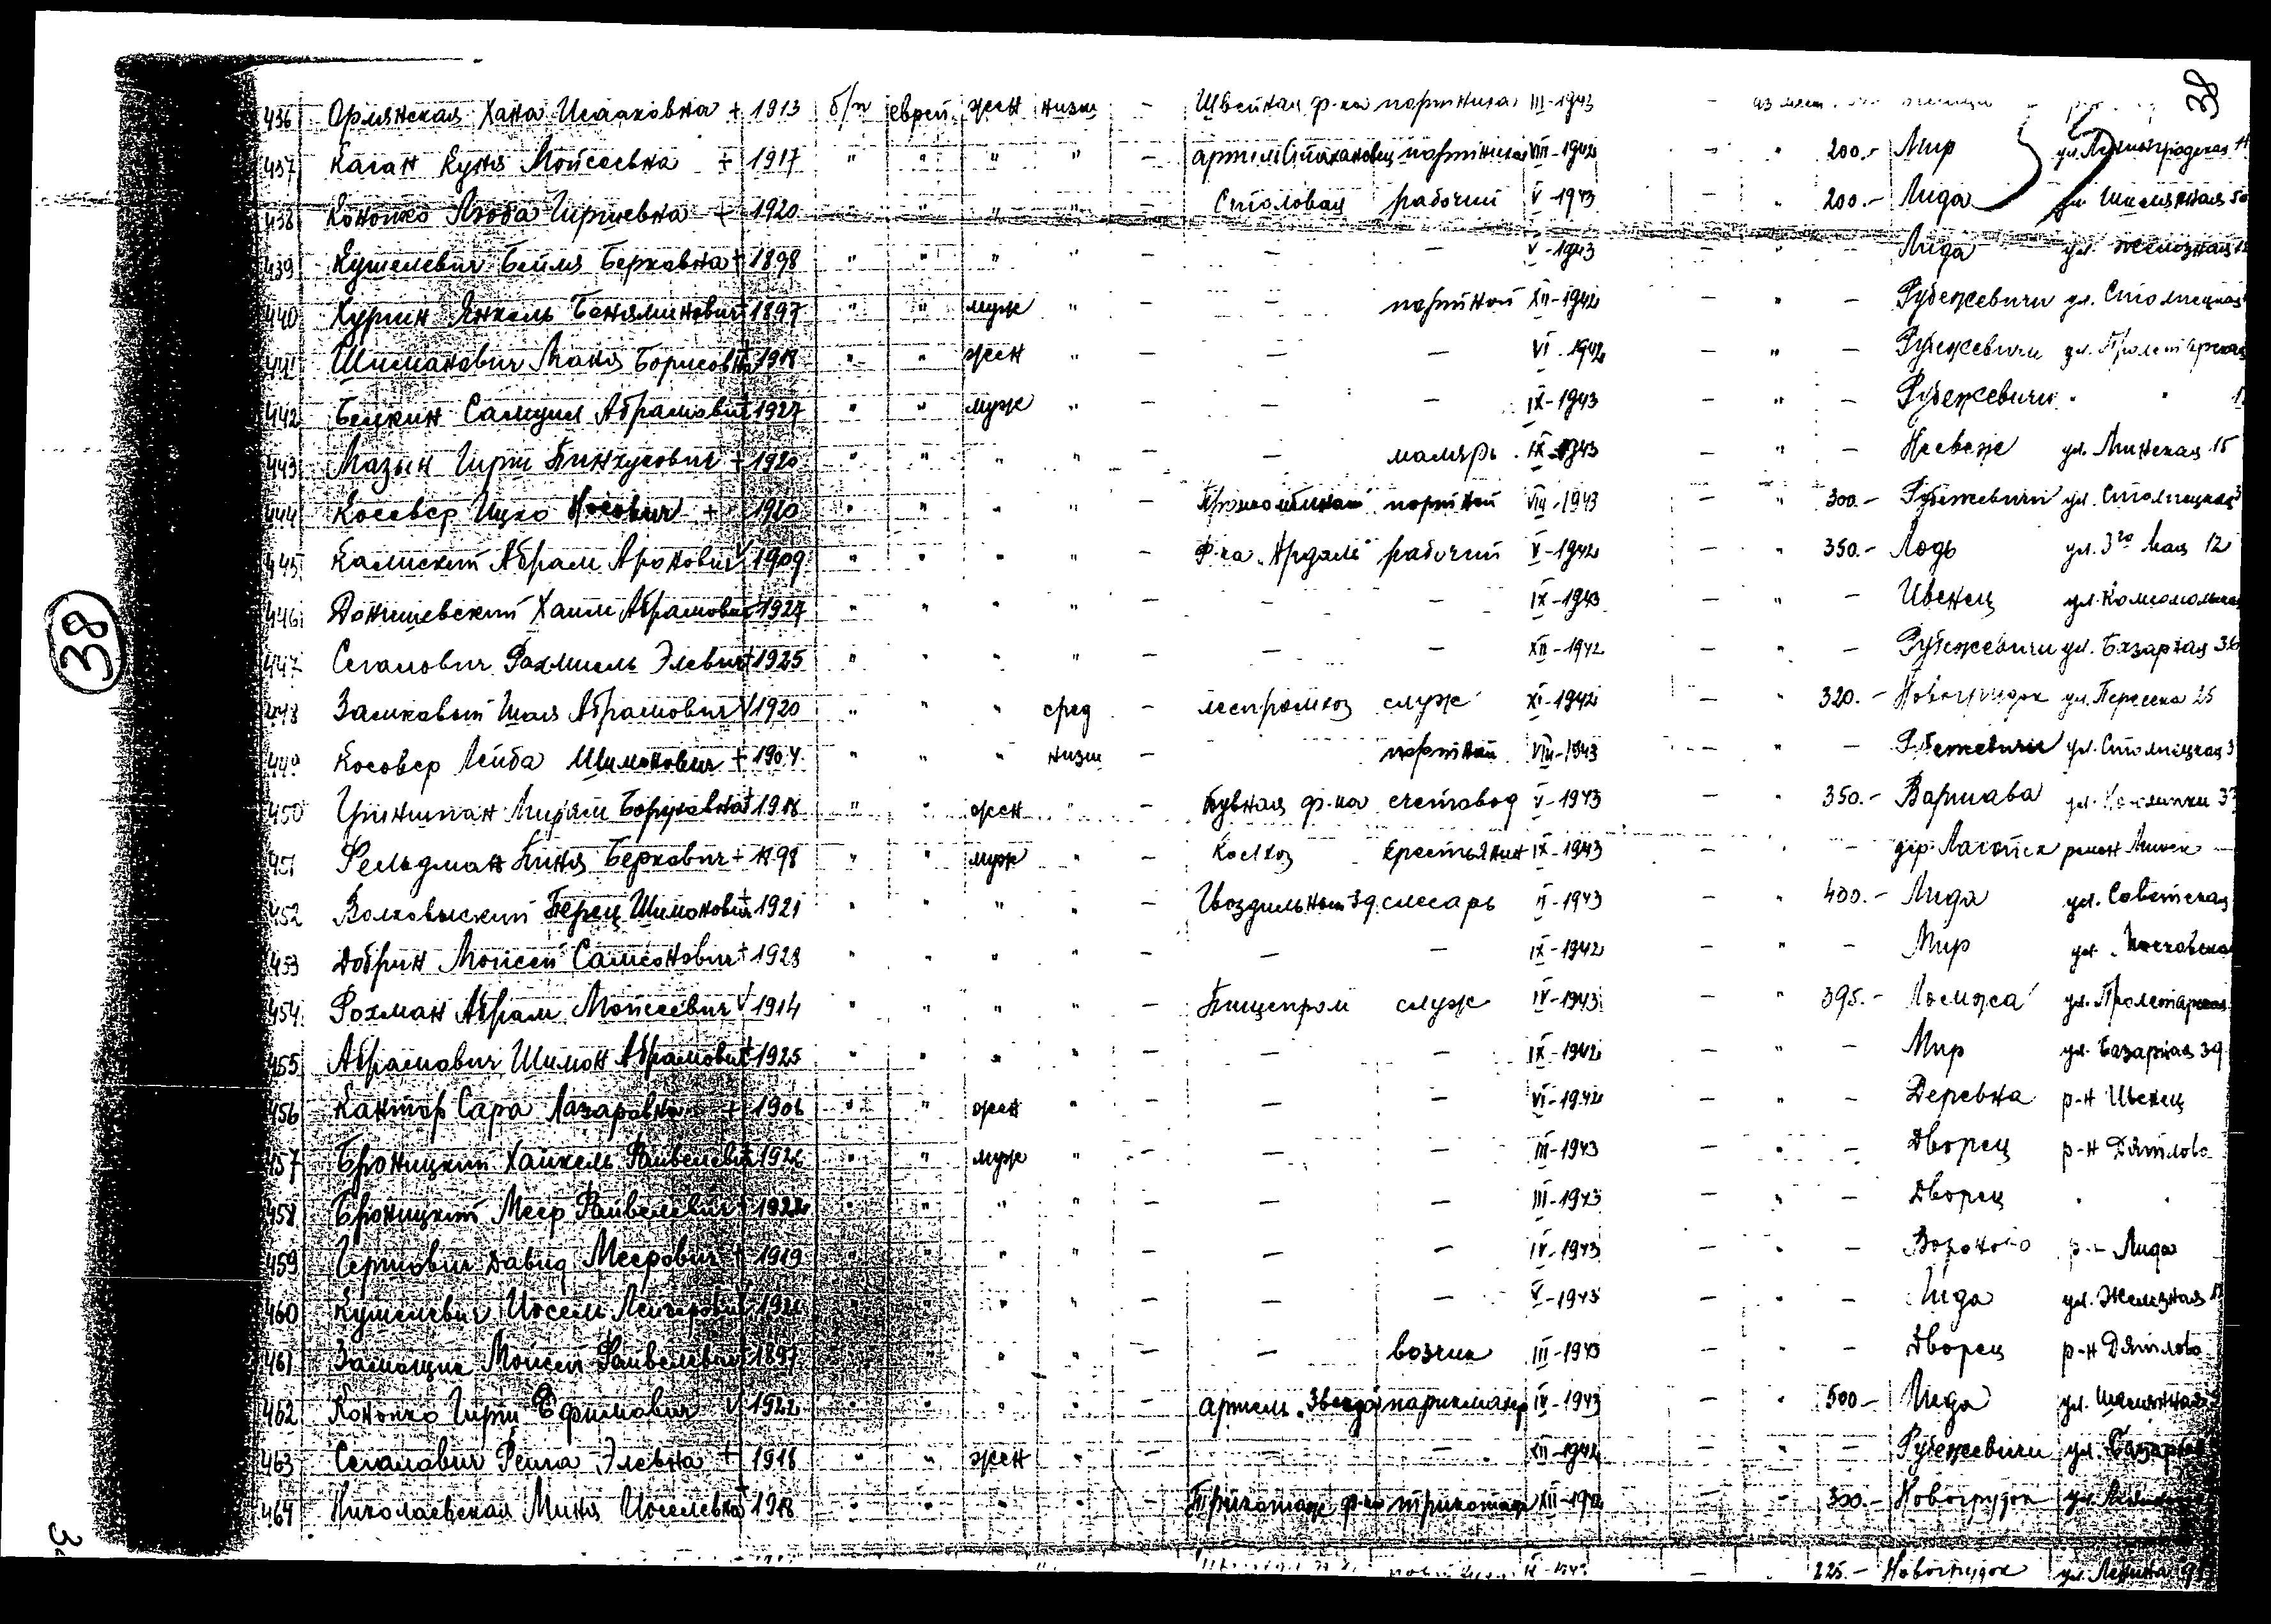 38
436 Орлянская Хана Исааковна + 1913 б/п еврей жен низш - Швейная ф-ка портниха III-1943 -
437 Каган Куня Мойсеевна + 1917 " " " " - артель Стахановец портниха VIII-1942 - " 200.- Мир
438 Конопко Люба Гиршевна + 1920 " " " " - Столовая рабочий V-1943 - " 200.- Лида
439 Кушелевич Бейля Берковна + 1898 " " " " - - - V-1943 - " - Лида ул. Железная
440 Хурин Янкель Беняминович + 1897 " " муж " - - портной XII-1942 - " - Рубежевичи ул. Столпецкая
441 Шиманович Маня Борисовна + 1918 " " жен " - - - VI-1942 - " - Рубежевичи ул. Пролетарская
442 Белкин Самуил Абрамович + 1927 " " муж " - - - IX-1943 - " - Рубежевичи " "
443 Мазын Гирш Пинхусович + 1920 " " " " - - маляр IX-1943 - " - Несвеже ул. Минская 15
444 Косовер Ицко Носович + 1920 " " " " - Промкомбинат портной VIII-1943 - " 300.- Рубежевичи ул. Столпецкая
445 Калиский Абрам Аронович V 1909 " " " " - Ф-ка "Ардаль" рабочий V-1942 - " 350.- Лодь ул. 3го Мая 12
446 Донишевский Хаим Абрамович + 1927 " " " " - - - IX-1943 - " - Ивенец ул. Комсомольская
447 Сегалович Рахмиель Элевич + 1925 " " " " - - - XII-1942 - " - Рубежевичи ул. Базарная 36
448 Замковый Шая Абрамович V 1920 " " " сред - леспромхоз служ XI-1942 - " 320.- Новогрудок ул. Пересека 25
449 Косовер Лейба Шимонович + 1904 " " " низш - портной VIII-1943 - " - Рубежевичи ул. Столпецкая
450 Гриншпан Мирям Боруховна + 1918 " " жен " - Обувная ф-ка счетовод V-1943 - " 350.- Варшава
451 Фельдман Пиня Беркович + 1898 " " муж " - Колхоз крестьянин IX-1943 - - дер. Лагойск район Минск -
452 Волковыский Перец Шимонович + 1921 " " " " - Гвоздильный зд. слесарь II-1943 - " 400.- Лида ул. Советская
453 Добрин Мойсей Самсонович + 1923 " " " " - - - IX-1942 - " - Мир ул. Московская
454 Рохман Абрам Мойсеевич V 1914 " " " " - Пищепром служ IV-1943 - " 395.- Ломжа ул. Пролетарская
455 Абрамович Шимон Абрамович + 1925 " " " " - - - IX-1942 - " - Мир ул. Базарная 39
456 Кантор Сара Лазаровна + 1906 " " жен " - - - VI-1942 - " - Деревна р-н Ивенец
457 Броницкий Хайкель Файвелевич + 1926 " " муж " - - - III-1943 - " - Дворец р-н Дятлово
458 Броницкий Меер Файвелевич + 1922 " " " " - - - III-1943 - " - Дворец " "
459 Гершович Давид Меерович + 1919 " " " " - - - IV-1943 - " - Вороново р-н Лида
460 Кушелевич Иосель 1921 " " " " - - - V-1943 - " - Лида ул. Железная
461 Замощик Мойсей Файвелевич + 1897 " " " " - - возчик III-1943 - " - Дворец р-н Дятлово
462 Конопко Гирш Ефимович V 1922 " " " " - артель "Звезда" парикмахер IV-1943 - " 500.- Лида
463 Сегалович Рейза Элевна + 1918 " " жен " - - - XII-1942 - " - Рубежевичи ул. Базарная
464 Николаевская Миня Иоселевна + 1918 " " " " - Трикотаж ф-ка трикотаж XII-1942 - " 300.- Новогрудок
225.- Новогрудок ул. Ленина
38